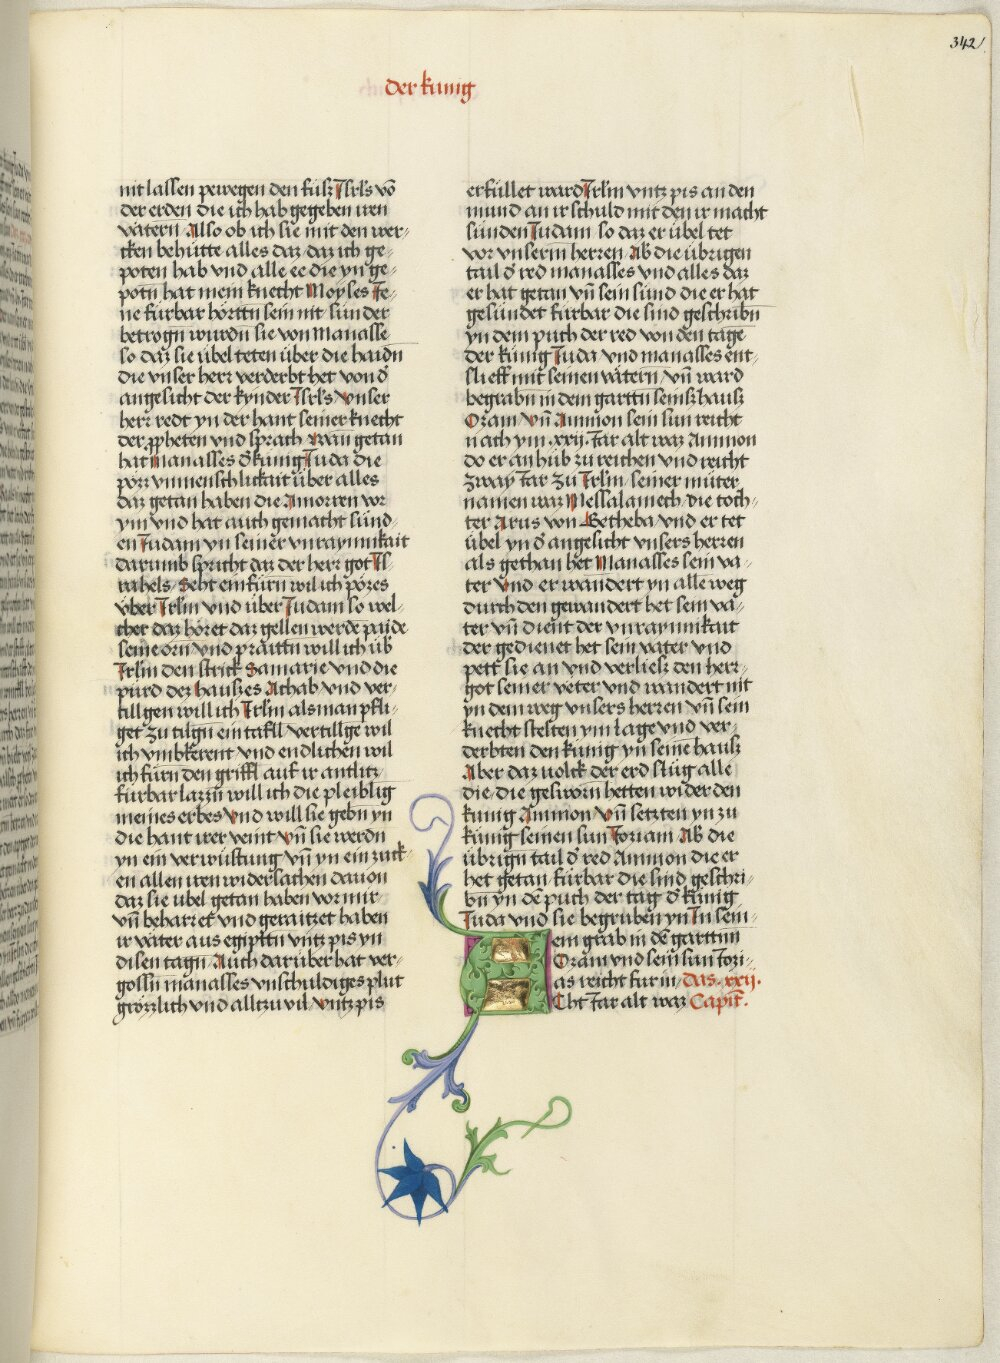 342
der kunig
nit lassen pewegen den fusz Isrls vō
der erden die ich hab gegeben iren
vätern Also ob ich sie mit den wer-
cken behütte alles daz daz ich ge-
poten hab vnd alle ee die yn ge-
potn hat mein knecht Moyses Je-
ne fürbar hörttn sein nit sunder
betrogn wurdn sie von Manasse
so daz sie übel teten über die haidn
die vnser herr verderbt het von d̄
angesicht der kynder Isrls Vnser
herr redt yn der hant seiner knecht
der ꝓpheten vnd sprach Wan getan
hat Manasses d̄ kunig Juda die
pözz vnmenschlickait über alles
daz getan haben die Amorren vor
ym vnd hat auch gemacht sünd-
en Judam yn seiner vnraynnikait
darumb spricht daz der herr got Is-
rahels Seht ein fürn wil ich pözes
über Jrlm vnd über Judam so wel-
cher daz höret daz gellen werde paide
seine orn vnd praittn will ich üb̄
Jrlm den strick Samarie vnd die
pürd dez hauszes Achab vnd ver-
tilligen will ich Jrlm als man pfli-
get zu tilgn ein tafll vertillge wil
ich vmbkerent vnd endlichen wil
ich fürn den griffl auf ir antlitz
fürbar lazzn will ich die pleiblig
meines erbes Vnd will sie gebn yn
die hant irer veint Vn̄ sie werdn
yn ein verwüstung vn̄ yn ein zuck-
en allen iren widersachen dauon
daz sie übel getan haben vor mir
vn̄ beharret vnd geraitzet haben
ir väter aus egipttn vntz pis yn
disen tagn Auch darüber hat ver-
gossn manasses vnschuldiges plut
grözzlich vnd alltzu vil Vntz pis
erfüllet ward Jrlm vntz pis an den
mund an ir schuld mit den ir macht
sünden Judam so daz er übel tet
vor vnserm herren Ab die übrigen
tail d̄ red manasses vnd alles daz
er hat getan vn̄ sein sünd die er hat
gesündet fürbar die sind geschribn
yn dem puch der red von den tage
der künig Juda vnd manasses ent-
slieff mit seinen vätern vn̄ ward
begrabn in dem garttn seins hausz
Ozam Vn̄ Ammon sein sun reicht
nach ym .xxij. Jar alt waz Ammon
do er anhüb zu reichen vnd reicht
zway Jar zu Jrlm seiner müter
namen war Messalamech die toch-
ter Arus von Betheba vnd er tet
übel yn d̄ angesicht vnsers herren
als gethan het Manasses sein va-
ter Vnd er wandert yn alle weg
durch den gewandert het sein va-
ter vn̄ dient der vnraynnikait
der gedienet het sein vater vnd
pett sie an vnd verliesz den herr-
got seiner veter vnd wandert nit
yn dem weg vnsers herren vn̄ sein
knecht stelten ym lage vnd ver-
derbten den kunig yn seine hausz
Aber daz volck der erd slüg alle
die die gesworn hetten wider den
künig Ammon Vn̄ setzten yn zu
künig seinen sun Joziam Ab die
übrign tail d̄ red Ammon die er
het getan fürbar die sind geschri-
bn yn dē puch der tag d̄ künig
Juda vnd sie begruben yn In sein-
em grab in dē garttnn
Ozam vnd sein sun Jozi-
as reicht für in Das .xxij.
Cht Jar alt waz Capit̄.